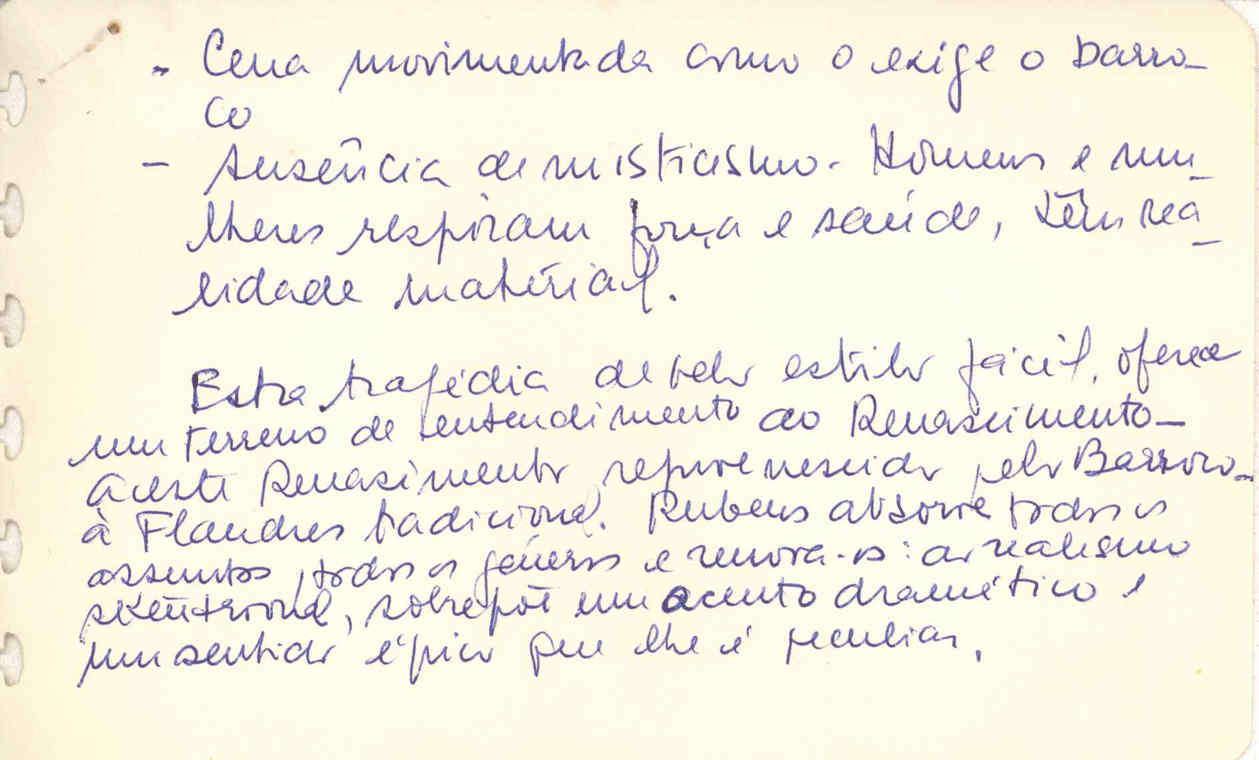 - Cena movimentada como o exige o barro-
co
- Ausência de misticismo. Homens e mu-
lheres respiram força e saúde, têm rea-
lidade material.
Esta tragédia de belo estilo fácil, oferece
um terreno de entendimento ao Renascimento-
a este Renascimento rejuvenescido pelo Barroco-
à Flandres tradicional. Rubens absorve todos os
assuntos, todos os géneros e renova-os: ao realismo
setentrional, sobrepõe um acento dramático e
um sentido épico que lhe é peculiar.